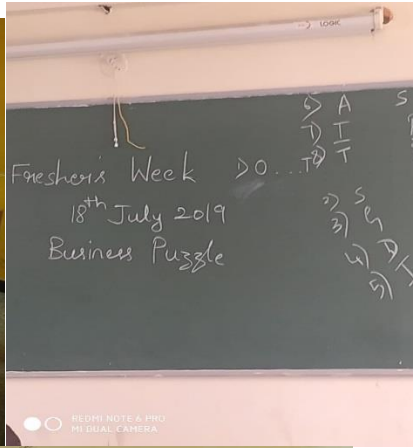 LOGIC
Fresher's Week DO...T
18th July 2019
Business Puzzle
6) A
7) I
8) T
2) S
3) G
4) D
5) I
S
REDMI NOTE 6 PRO
MI DUAL CAMERA